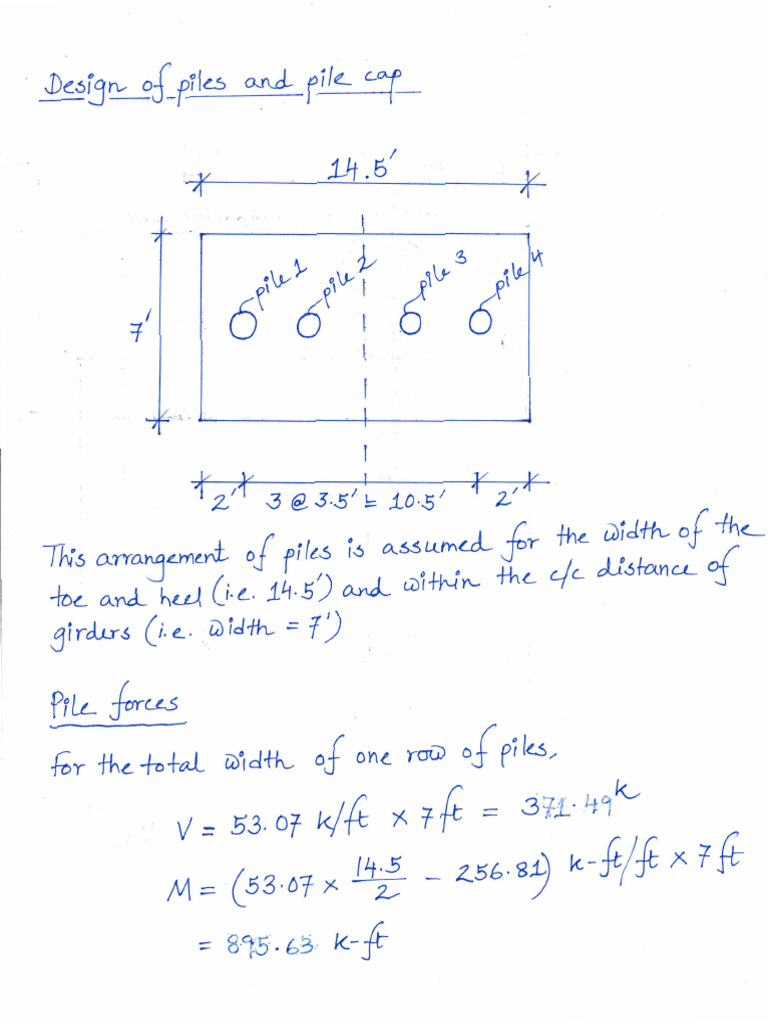 Design of piles and pile cap
14.5'
pile 1 pile 2 pile 3 pile 4
7'
2' 3 @ 3.5' = 10.5' 2'
This arrangement of piles is assumed for the width of the
toe and heel (i.e. 14.5') and within the c/c distance of
girders (i.e. width = 7')
Pile forces
For the total width of one row of piles,
V = 53.07 k/ft x 7 ft = 371.49 k
M = (53.07 x 14.5/2 - 256.81) k-ft/ft x 7 ft
= 895.63 k-ft